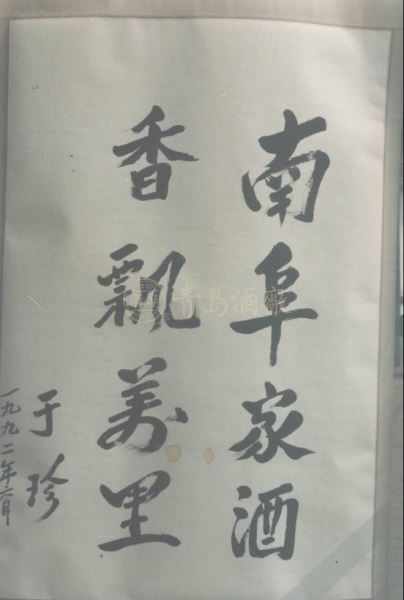 南阜家酒
香飘万里
于珍
一九九二年六月
青岛酒廠